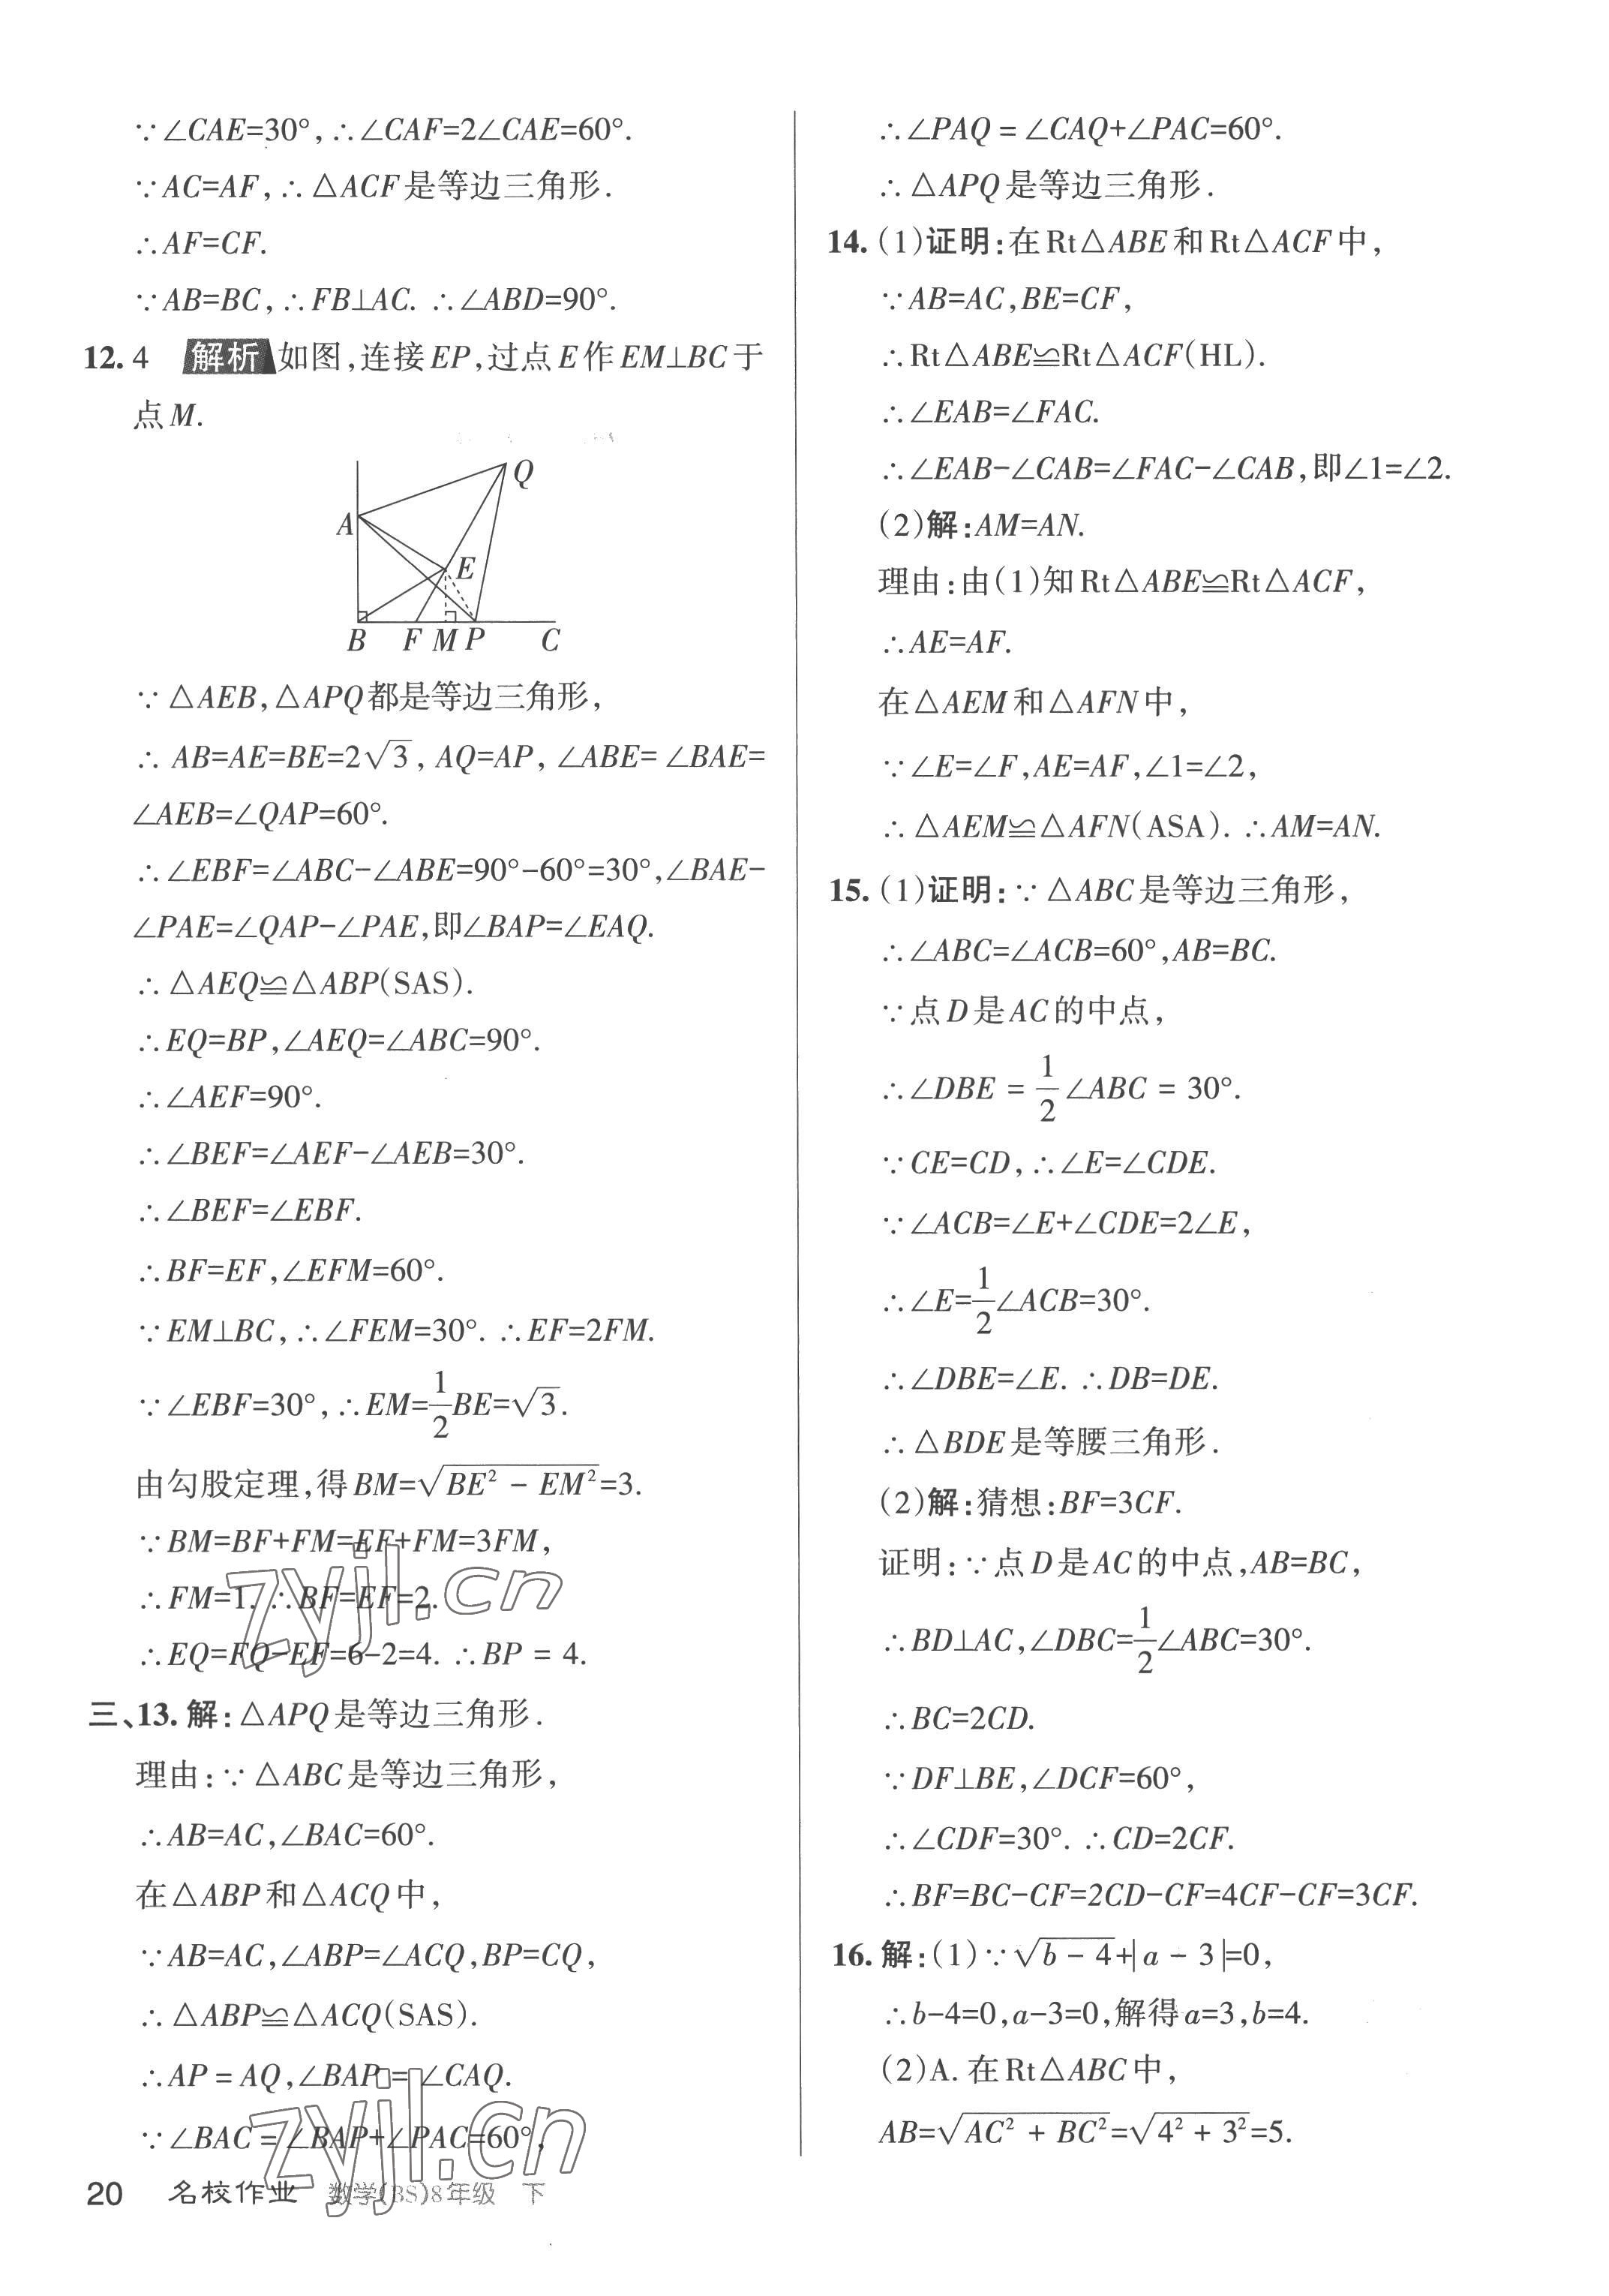 ∵∠CAE=30°,∴∠CAF=2∠CAE=60°.
∵AC=AF,∴△ACF是等边三角形.
∴AF=CF.
∵AB=BC,∴FB⊥AC. ∴∠ABD=90°.
12. 4 解析 如图,连接EP,过点E作EM⊥BC于
点M.
Q
A
E
B F M P C
∵△AEB,△APQ都是等边三角形,
∴AB=AE=BE=2√3, AQ=AP, ∠ABE=∠BAE=
∠AEB=∠QAP=60°.
∴∠EBF=∠ABC-∠ABE=90°-60°=30°,∠BAE-
∠PAE=∠QAP-∠PAE,即∠BAP=∠EAQ.
∴△AEQ≌△ABP(SAS).
∴EQ=BP,∠AEQ=∠ABC=90°.
∴∠AEF=90°.
∴∠BEF=∠AEF-∠AEB=30°.
∴∠BEF=∠EBF.
∴BF=EF,∠EFM=60°.
∵EM⊥BC,∴∠FEM=30°. ∴EF=2FM.
∵∠EBF=30°,∴EM=1/2BE=√3.
由勾股定理,得BM=√(BE²-EM²)=3.
∵BM=BF+FM=EF+FM=3FM,
∴FM=1. ∴BF=EF=2.
∴EQ=FQ-EF=6-2=4. ∴BP = 4.
三、13. 解:△APQ是等边三角形.
理由:∵△ABC是等边三角形,
∴AB=AC,∠BAC=60°.
在△ABP和△ACQ中,
∵AB=AC,∠ABP=∠ACQ,BP=CQ,
∴△ABP≌△ACQ(SAS).
∴AP = AQ,∠BAP = ∠CAQ.
∵∠BAC = ∠BAP+∠PAC=60°,
∴∠PAQ = ∠CAQ+∠PAC=60°.
∴△APQ是等边三角形.
14. (1)证明:在Rt△ABE和Rt△ACF中,
∵AB=AC,BE=CF,
∴Rt△ABE≌Rt△ACF(HL).
∴∠EAB=∠FAC.
∴∠EAB-∠CAB=∠FAC-∠CAB,即∠1=∠2.
(2)解:AM=AN.
理由:由(1)知Rt△ABE≌Rt△ACF,
∴AE=AF.
在△AEM和△AFN中,
∵∠E=∠F,AE=AF,∠1=∠2,
∴△AEM≌△AFN(ASA). ∴AM=AN.
15. (1)证明:∵△ABC是等边三角形,
∴∠ABC=∠ACB=60°,AB=BC.
∵点D是AC的中点,
∴∠DBE = 1/2∠ABC = 30°.
∵CE=CD,∴∠E=∠CDE.
∵∠ACB=∠E+∠CDE=2∠E,
∴∠E=1/2∠ACB=30°.
∴∠DBE=∠E. ∴DB=DE.
∴△BDE是等腰三角形.
(2)解:猜想:BF=3CF.
证明:∵点D是AC的中点,AB=BC,
∴BD⊥AC,∠DBC=1/2∠ABC=30°.
∴BC=2CD.
∵DF⊥BE,∠DCF=60°,
∴∠CDF=30°. ∴CD=2CF.
∴BF=BC-CF=2CD-CF=4CF-CF=3CF.
16. 解:(1)∵√(b-4)+|a-3|=0,
∴b-4=0,a-3=0,解得a=3,b=4.
(2)A. 在Rt△ABC中,
AB=√(AC²+BC²)=√(4²+3²)=5.
zyjl.cn
zyjl.cn
20 名校作业 数学(BS)8年级 下